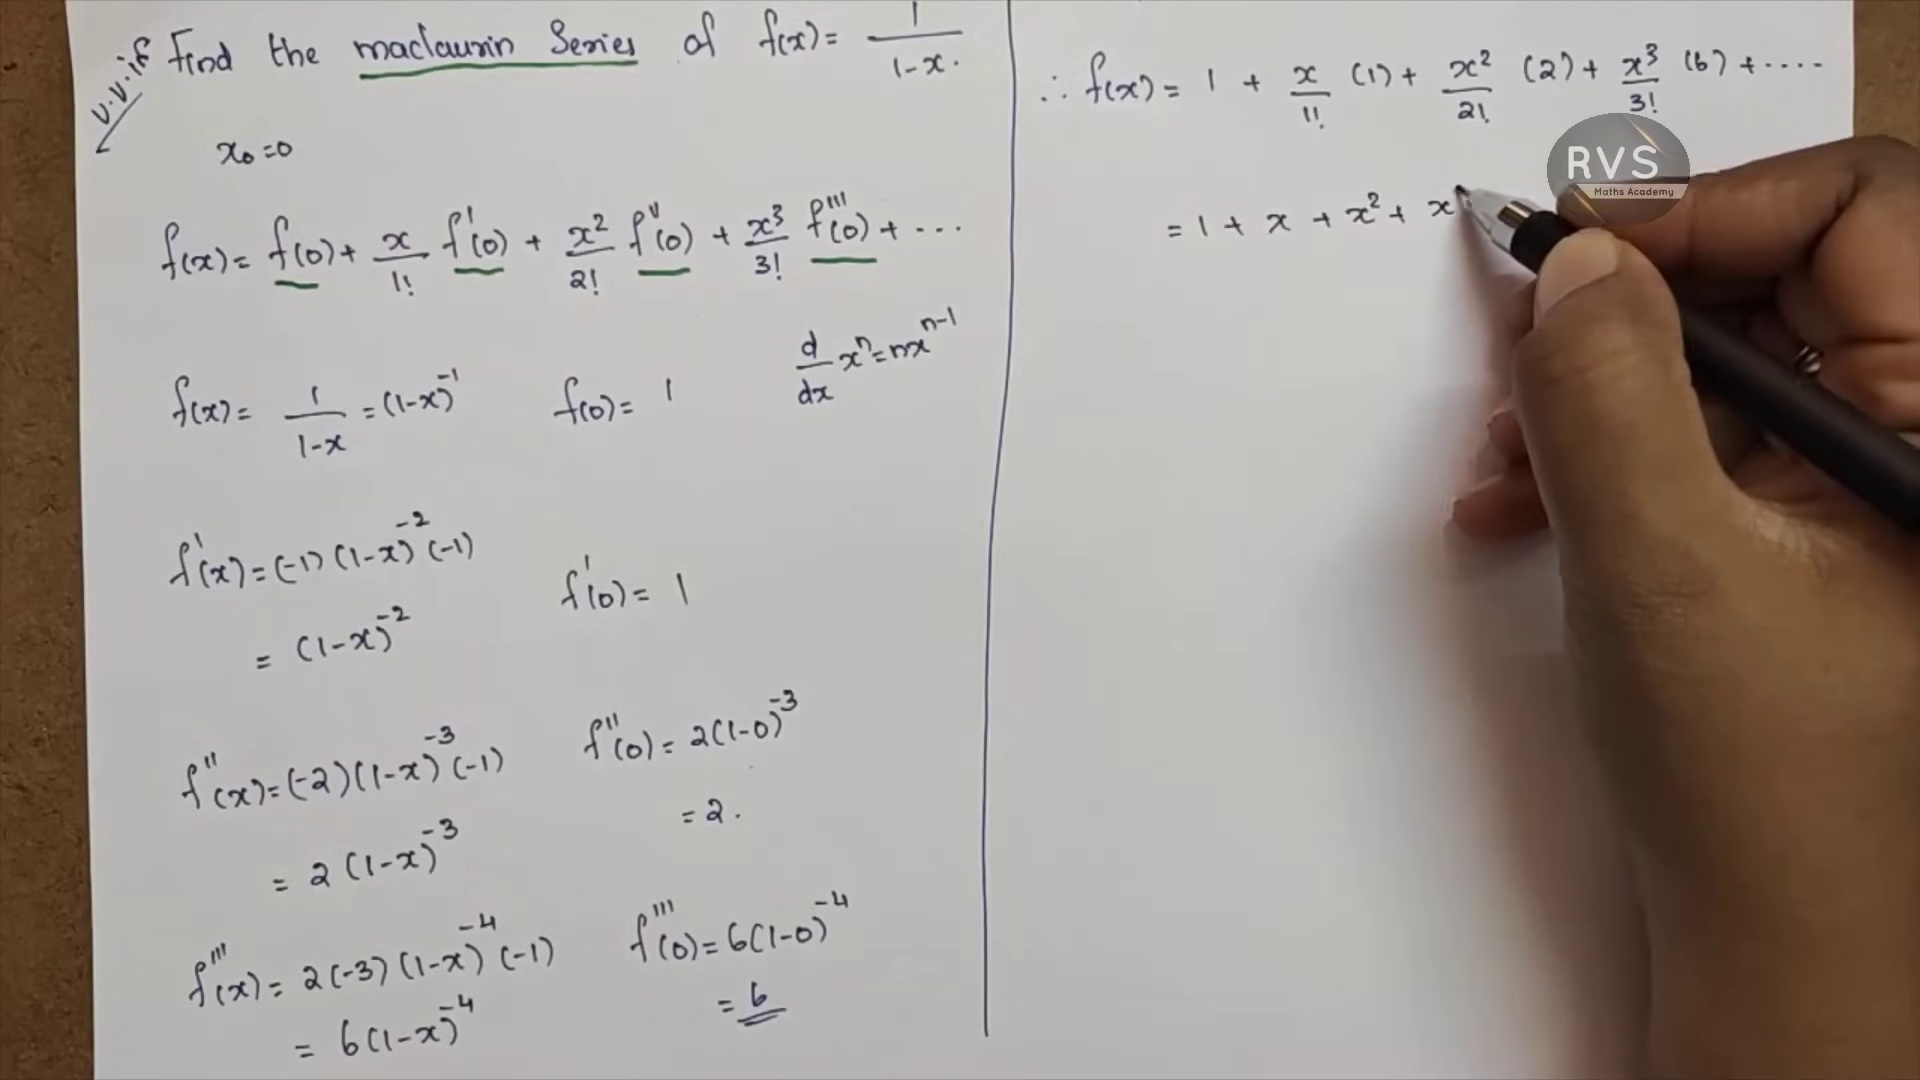 V.V.if Find the maclaurin Series of f(x)= 1/1-x.
x₀=0
f(x)= f(0)+ x/1! f'(0) + x²/2! f''(0) + x³/3! f'''(0) + ...
d/dx xⁿ=nxⁿ⁻¹
f(x)= 1/1-x =(1-x)⁻¹ f(0)= 1
f'(x)=(-1)(1-x)⁻²(-1)
= (1-x)⁻² f'(0)= 1
f''(x)=(-2)(1-x)⁻³(-1) f''(0)= 2(1-0)⁻³
= 2(1-x)⁻³ =2.
f'''(x)= 2(-3)(1-x)⁻⁴(-1) f'''(0)=6(1-0)⁻⁴
= 6(1-x)⁻⁴ =6
∴ f(x)= 1 + x/1! (1)+ x²/2! (2)+ x³/3! (6)+....
= 1 + x + x² + x
RVS
Maths Academy